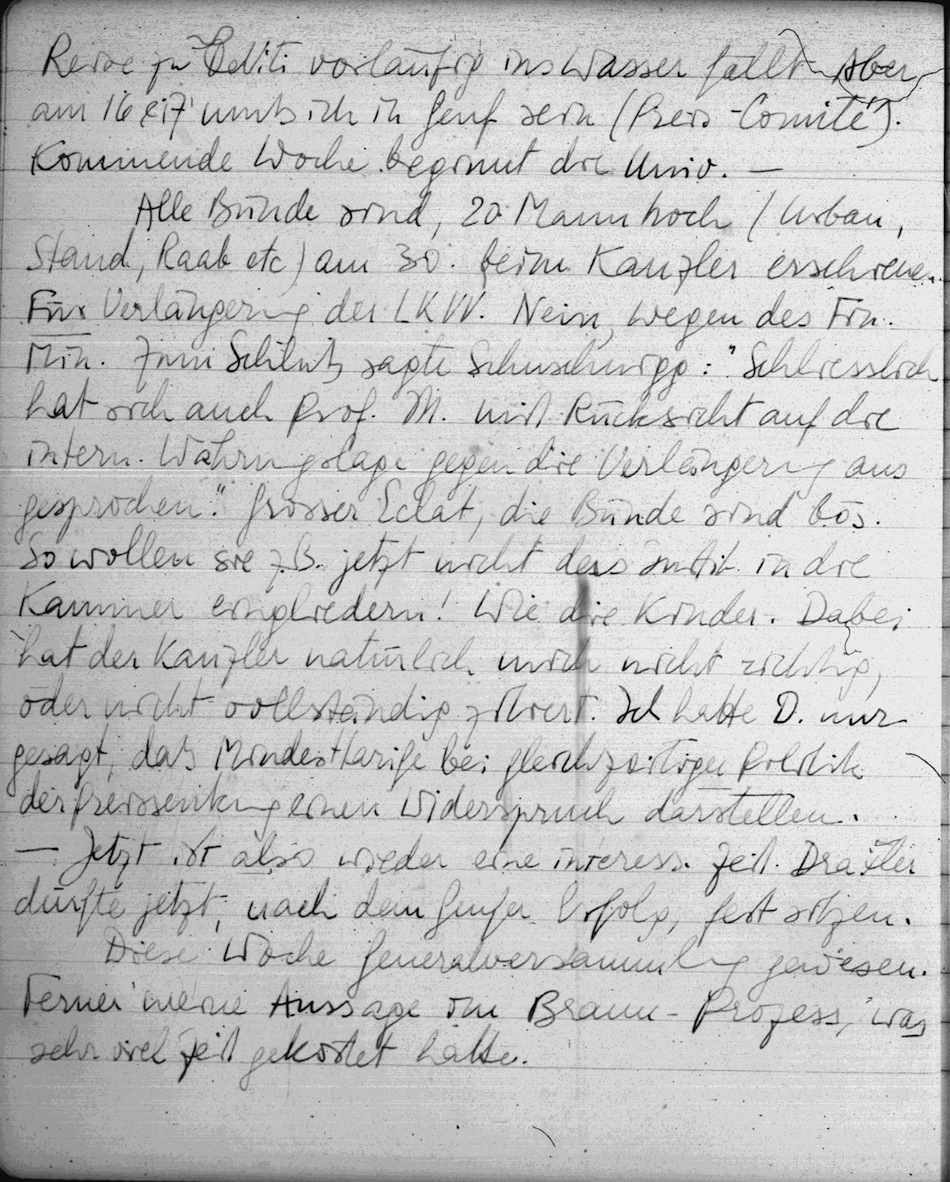 Reise zu vorläufig ins Wasser fällt. Aber
am 16 XI muß ich in Genf sein (Preis-Comité).
Kommende Woche beginnt die Univ. —
Alle Bünde sind, 20 Mann hoch (Urban,
Stand, Raab etc) am 30. beim Kanzler erschienen.
Für Verlängerung der LKVV. Nein, wegen des Fin.
Min. Zum Schluß sagte Schuschnigg: "Schliesslich
hat sich auch Prof. M. mit Rücksicht auf die
intern. Währungslage gegen die Verlängerung aus
gesprochen". Grosser Eclat, die Bünde sind bös.
So wollen sie z.B. jetzt nicht das Instit. in die
Kammer eingliedern! Wie die Kinder. Dabei
hat der Kanzler natürlich mich nicht richtig,
oder nicht vollständig zitiert. Ich hatte D. nur
gesagt, daß Mindesttarife bei gleichzeitiger Politik
der Preissenkung einen Widerspruch darstellen.
— Jetzt ist also wieder eine interess. Zeit. Draxler
dürfte jetzt, nach dem Genfer Erfolg, fest sitzen.
Diese Woche Generalversammlung gewesen.
Ferner meine Aussage im Braun-Prozess, was
sehr viel Zeit gekostet hatte.